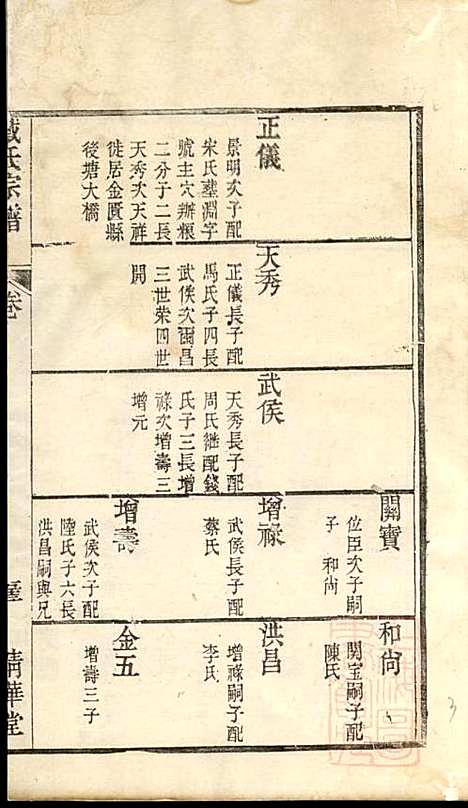 正儀
景明次子配
宋氏塟淵字
號主穴辦糧
二分子二長
天秀次天祥
徙居金匱縣
後塘大橋
天秀
正儀長子配
馬氏子四長
武侯次爾昌
三世榮四世
開
武侯
天秀長子配
周氏継配錢
氏子三長增
祿次增壽三
增元
開寶
位臣次子嗣
子 和尚
增祿
武侯長子配
蔡氏
增壽
武侯次子配
陸氏子六長
洪昌嗣與兄
和尚
開宝嗣子配
陳氏
洪昌
增祿嗣子配
李氏
金五
增壽三子
氏宗譜
卷
清華堂
3